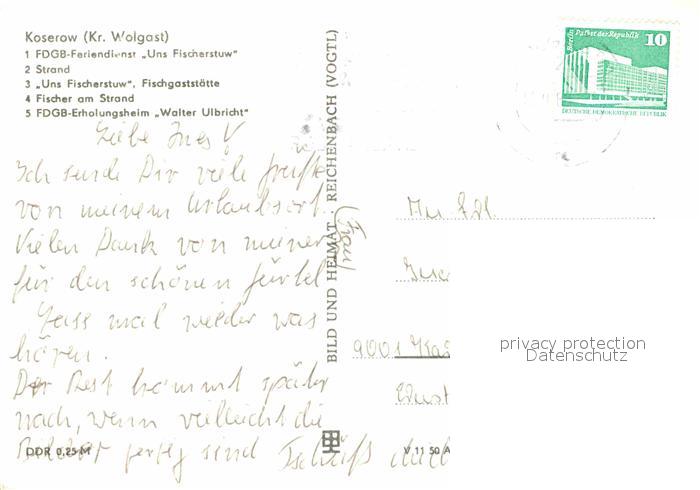 Koserow (Kr. Wolgast)
1 FDGB-Feriendienst „Uns Fischerstuw"
2 Strand
3 „Uns Fischerstuw", Fischgaststätte
4 Fischer am Strand
5 FDGB-Erholungsheim „Walter Ulbricht"
Liebe Ines!
Ich sende Dir viele Grüße
von meinem Urlaubsort.
Vielen Dank von meiner
Frau
für den schönen Gürtel
Lass mal wieder was
hören.
Der Rest kommt später
nach, wenn vielleicht die
Bilder fertig sind Tschüß
DDR 0,25 M
BILD UND HEIMAT REICHENBACH (VOGTL)
V 11 50 A
Berlin Palast der Republik
10
DEUTSCHE DEMOKRATISCHE REPUBLIK
An Frl.
Ines
9001
privacy protection
Datenschutz